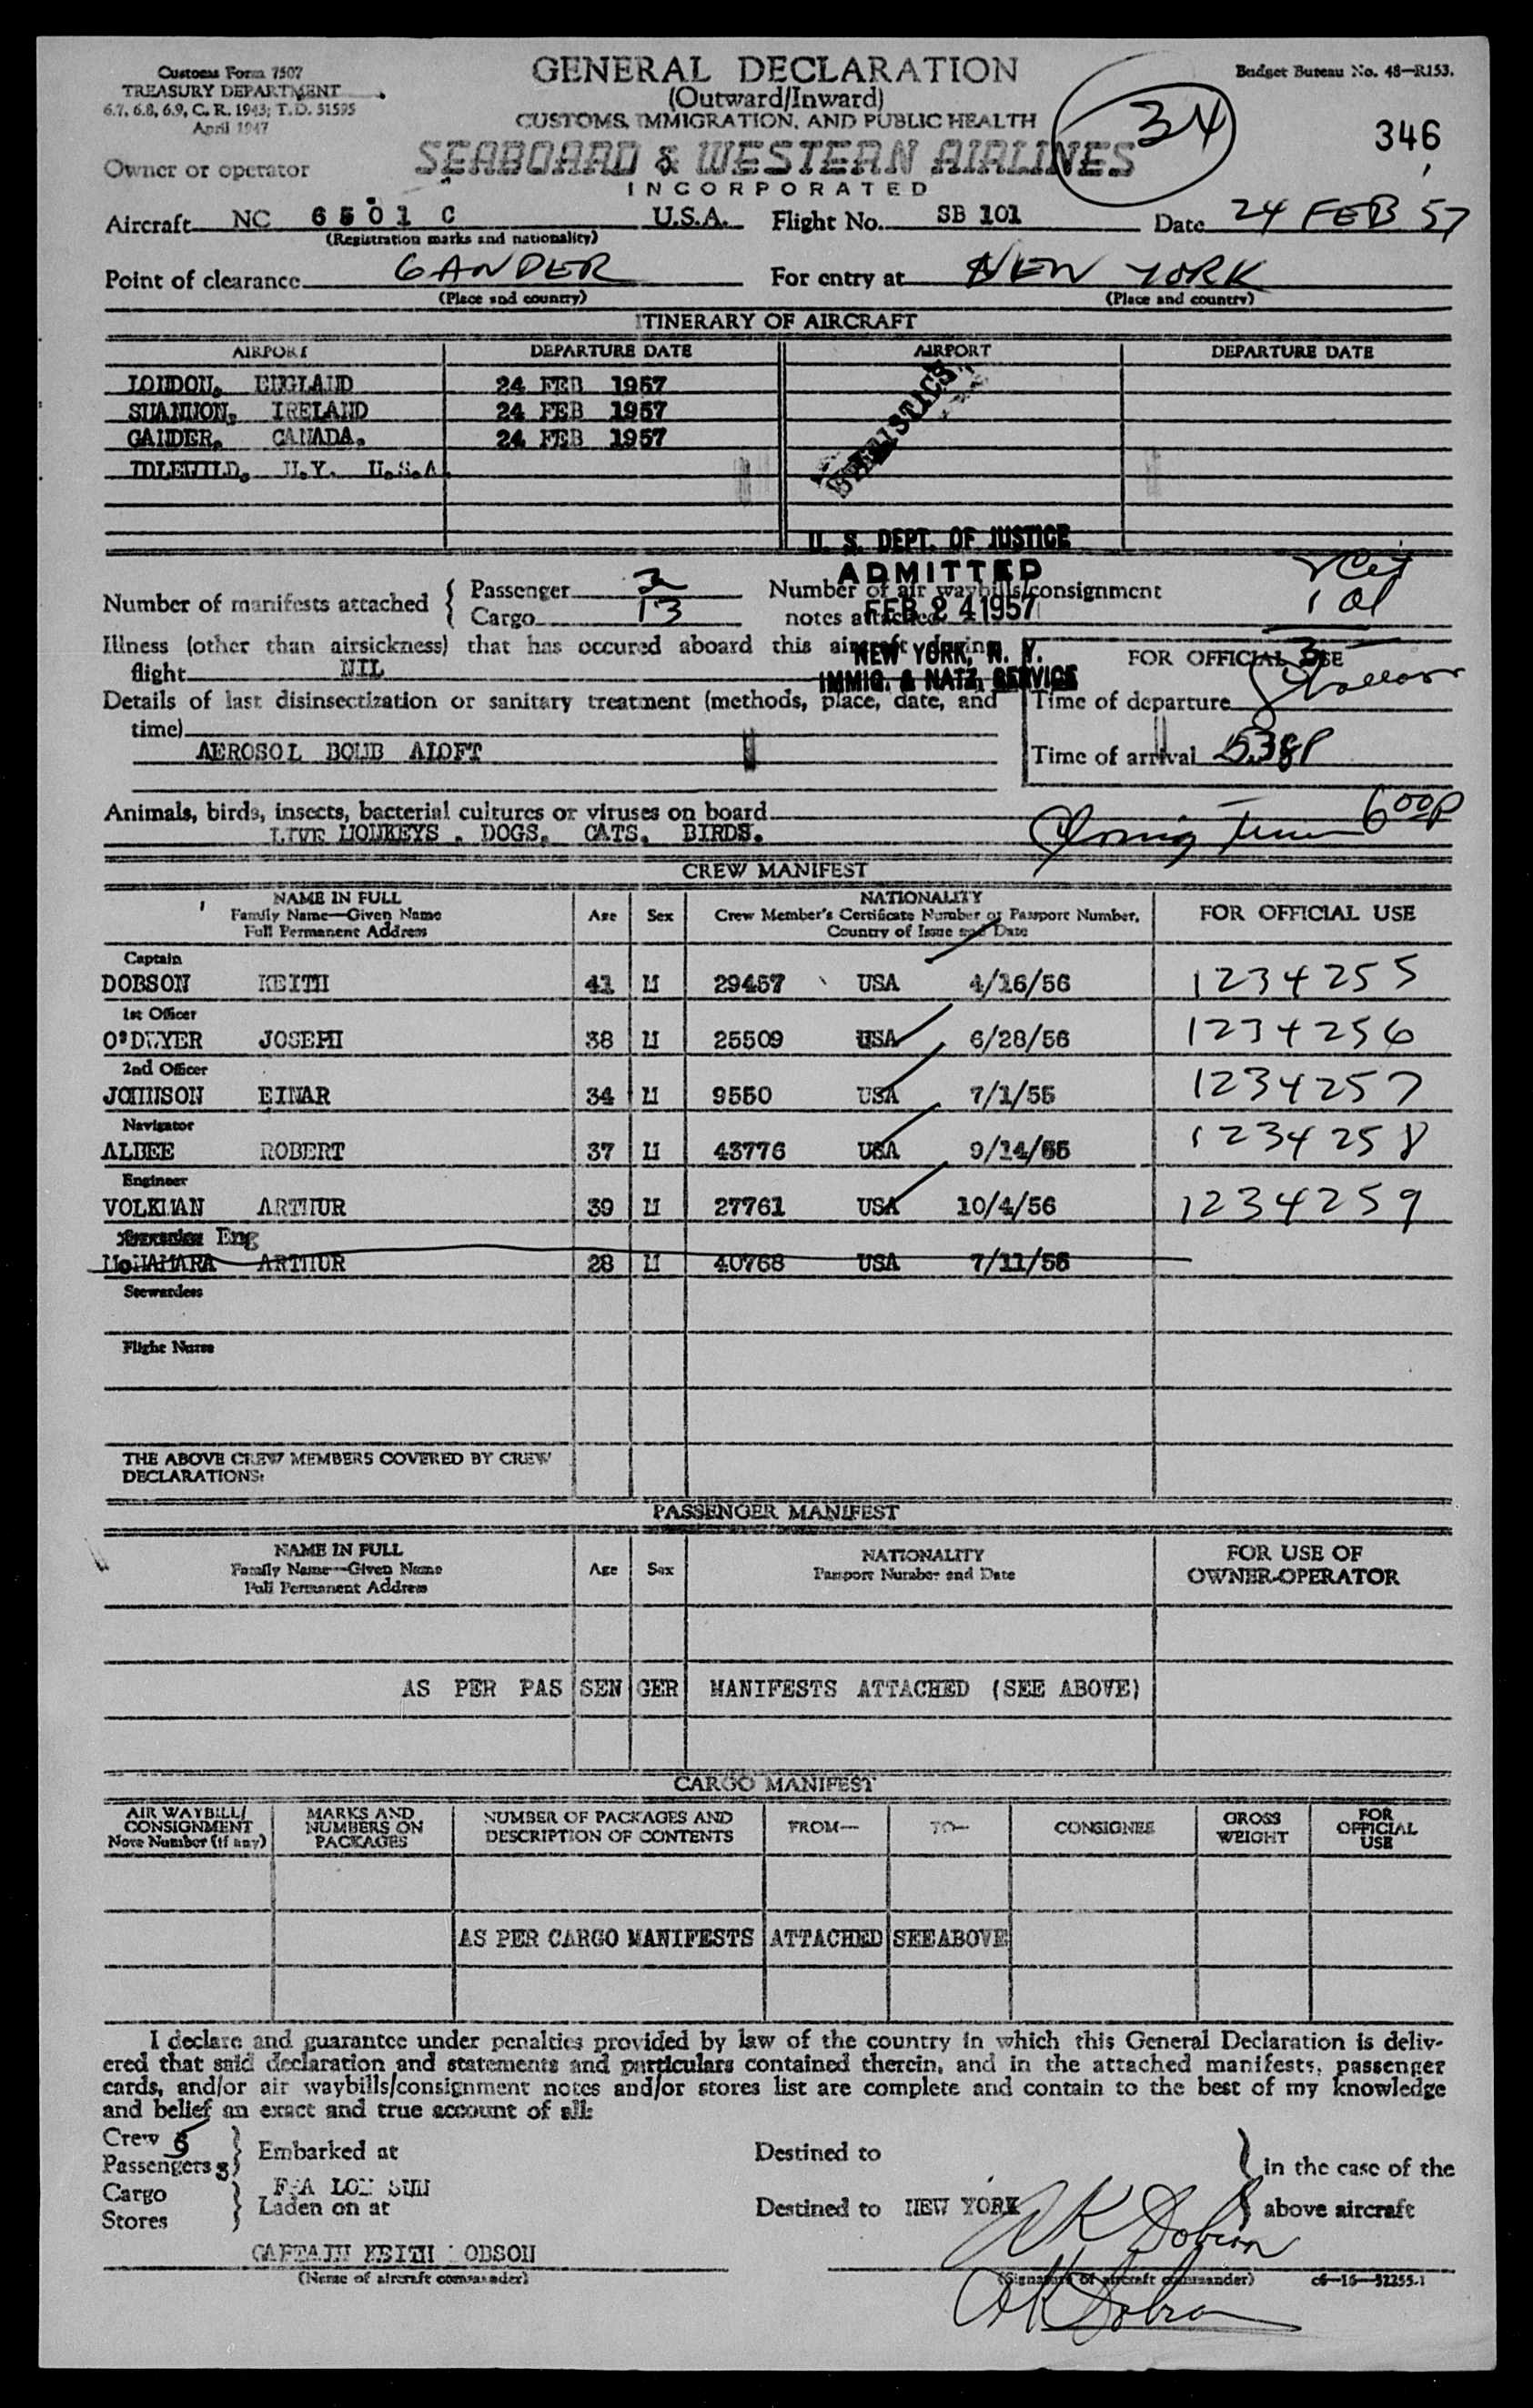 Customs Form 7507
TREASURY DEPARTMENT
6.7, 6.8, 6.9, C. R. 1943; T.D. 51595
April 1947
GENERAL DECLARATION
(Outward/Inward)
CUSTOMS, IMMIGRATION, AND PUBLIC HEALTH
Budget Bureau No. 48—R153.
34
346
Owner or operator SEABOARD & WESTERN AIRLINES
INCORPORATED
Aircraft NC 6501 C U.S.A. Flight No. SB 101 Date 24 FEB 57
(Registration marks and nationality)
Point of clearance GANDER For entry at NEW YORK
(Place and country) (Place and country)
ITINERARY OF AIRCRAFT
AIRPORT DEPARTURE DATE AIRPORT DEPARTURE DATE
LONDON, ENGLAND 24 FEB 1957
SHANNON, IRELAND 24 FEB 1957
GANDER, CANADA. 24 FEB 1957
IDLEWILD, N.Y. U.S.A.
STATISTICS
U. S. DEPT. OF JUSTICE
ADMITTED
FEB 24 1957
NEW YORK, N. Y.
IMMIG. & NATZ. SERVICE
Number of manifests attached { Passenger 2
Cargo 13
Number of air waybills/consignment
notes attached
Illness (other than airsickness) that has occured aboard this aircraft during
flight NIL
FOR OFFICIAL USE
3
Details of last disinsectization or sanitary treatment (methods, place, date, and
time)
AEROSOL BOMB ALOFT
Time of departure
Time of arrival 5:38P
Animals, birds, insects, bacterial cultures or viruses on board
LIVE MONKEYS , DOGS, CATS, BIRDS.
600P
CREW MANIFEST
NAME IN FULL
Family Name—Given Name
Full Permanent Address
Age Sex
NATIONALITY
Crew Member's Certificate Number or Passport Number,
Country of Issue and Date
FOR OFFICIAL USE
Captain
DOBSON KEITH 41 M 29457 USA 4/16/56 1234255
1st Officer
O'DWYER JOSEPH 38 M 25509 USA 6/28/56 1234256
2nd Officer
JOHNSON EINAR 34 M 9550 USA 7/1/55 1234257
Navigator
ALBEE ROBERT 37 M 43776 USA 9/14/55 1234258
Engineer
VOLKMAN ARTHUR 39 M 27761 USA 10/4/56 1234259
Eng
McNAMARA ARTHUR 28 M 40768 USA 7/11/56
Stewardess
Flight Nurse
THE ABOVE CREW MEMBERS COVERED BY CREW
DECLARATIONS:
PASSENGER MANIFEST
NAME IN FULL
Family Name—Given Name
Full Permanent Address
Age Sex
NATIONALITY
Passport Number and Date
FOR USE OF
OWNER-OPERATOR
AS PER PASSENGER MANIFESTS ATTACHED (SEE ABOVE)
CARGO MANIFEST
AIR WAYBILL/
CONSIGNMENT
Note Number (if any)
MARKS AND
NUMBERS ON
PACKAGES
NUMBER OF PACKAGES AND
DESCRIPTION OF CONTENTS
FROM— TO— CONSIGNEE
GROSS
WEIGHT
FOR
OFFICIAL
USE
AS PER CARGO MANIFESTS ATTACHED SEE ABOVE
I declare and guarantee under penalties provided by law of the country in which this General Declaration is deliv-
ered that said declaration and statements and particulars contained therein, and in the attached manifests, passenger
cards, and/or air waybills/consignment notes and/or stores list are complete and contain to the best of my knowledge
and belief an exact and true account of all:
Crew 5
Passengers 3 } Embarked at Destined to } in the case of the
Cargo
Stores } Laden on at Destined to NEW YORK above aircraft
CAPTAIN KEITH OBSON
(Name of aircraft commander)
K Dobson
(Signature of aircraft commander) c6—16—52255-1
K Dobson